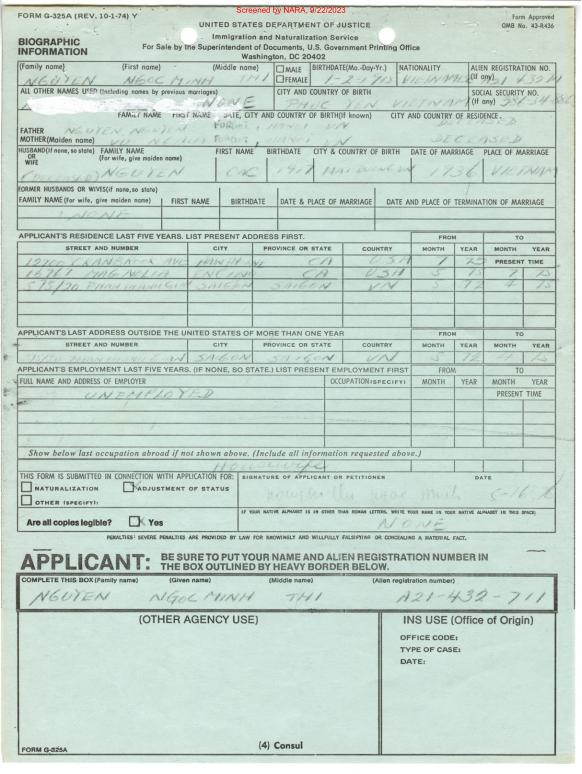 Screened by NARA, 9/22/2023
FORM G-325A (REV. 10-1-74) Y
UNITED STATES DEPARTMENT OF JUSTICE
Form Approved
OMB No. 43-R436
Immigration and Naturalization Service
BIOGRAPHIC INFORMATION
For Sale by the Superintendent of Documents, U.S. Government Printing Office
Washington, DC 20402
(Family name) (First name) (Middle name) MALE FEMALE BIRTHDATE(Mo.-Day-Yr.) NATIONALITY ALIEN REGISTRATION NO. (If any)
NGUYEN NGOC MINH THI
ALL OTHER NAMES USED (Including names by previous marriages) CITY AND COUNTRY OF BIRTH SOCIAL SECURITY NO. (If any)
NONE PHUC YEN VIETNAM
FAMILY NAME FIRST NAME DATE, CITY AND COUNTRY OF BIRTH(If known) CITY AND COUNTRY OF RESIDENCE
FATHER NGUYEN NGUYEN HANOI VN DECEASED
MOTHER(Maiden name) VN DECEASED
HUSBAND(If none, so state) OR WIFE FAMILY NAME (For wife, give maiden name) FIRST NAME BIRTHDATE CITY & COUNTRY OF BIRTH DATE OF MARRIAGE PLACE OF MARRIAGE
(DECEASED) NGUYEN VN 1936 VIETNAM
FORMER HUSBANDS OR WIVES(if none,so state)
FAMILY NAME(For wife, give maiden name) FIRST NAME BIRTHDATE DATE & PLACE OF MARRIAGE DATE AND PLACE OF TERMINATION OF MARRIAGE
NONE
APPLICANT'S RESIDENCE LAST FIVE YEARS. LIST PRESENT ADDRESS FIRST. FROM TO
STREET AND NUMBER CITY PROVINCE OR STATE COUNTRY MONTH YEAR MONTH YEAR
12700 CRANBROOK AVE CA USA PRESENT TIME
MAGNOLIA ENCINO CA USA 5 75 7 75
SAIGON SAIGON VN 5 72 4 75
APPLICANT'S LAST ADDRESS OUTSIDE THE UNITED STATES OF MORE THAN ONE YEAR FROM TO
STREET AND NUMBER CITY PROVINCE OR STATE COUNTRY MONTH YEAR MONTH YEAR
SAIGON SAIGON VN 5 72 4 75
APPLICANT'S EMPLOYMENT LAST FIVE YEARS. (IF NONE, SO STATE.) LIST PRESENT EMPLOYMENT FIRST FROM TO
FULL NAME AND ADDRESS OF EMPLOYER OCCUPATION(SPECIFY) MONTH YEAR MONTH YEAR
UNEMPLOYED PRESENT TIME
Show below last occupation abroad if not shown above. (Include all information requested above.)
Housewife
THIS FORM IS SUBMITTED IN CONNECTION WITH APPLICATION FOR: SIGNATURE OF APPLICANT OR PETITIONER DATE
NATURALIZATION ADJUSTMENT OF STATUS
OTHER (SPECIFY): 5-16-76
IF YOUR NATIVE ALPHABET IS IN OTHER THAN ROMAN LETTERS, WRITE YOUR NAME IN YOUR NATIVE ALPHABET IN THIS SPACE:
Are all copies legible? Yes NONE
PENALTIES: SEVERE PENALTIES ARE PROVIDED BY LAW FOR KNOWINGLY AND WILLFULLY FALSIFYING OR CONCEALING A MATERIAL FACT.
APPLICANT: BE SURE TO PUT YOUR NAME AND ALIEN REGISTRATION NUMBER IN THE BOX OUTLINED BY HEAVY BORDER BELOW.
COMPLETE THIS BOX (Family name) (Given name) (Middle name) (Alien registration number)
NGUYEN NGOC MINH THI A21-432-711
(OTHER AGENCY USE) INS USE (Office of Origin)
OFFICE CODE:
TYPE OF CASE:
DATE:
FORM G-325A (4) Consul